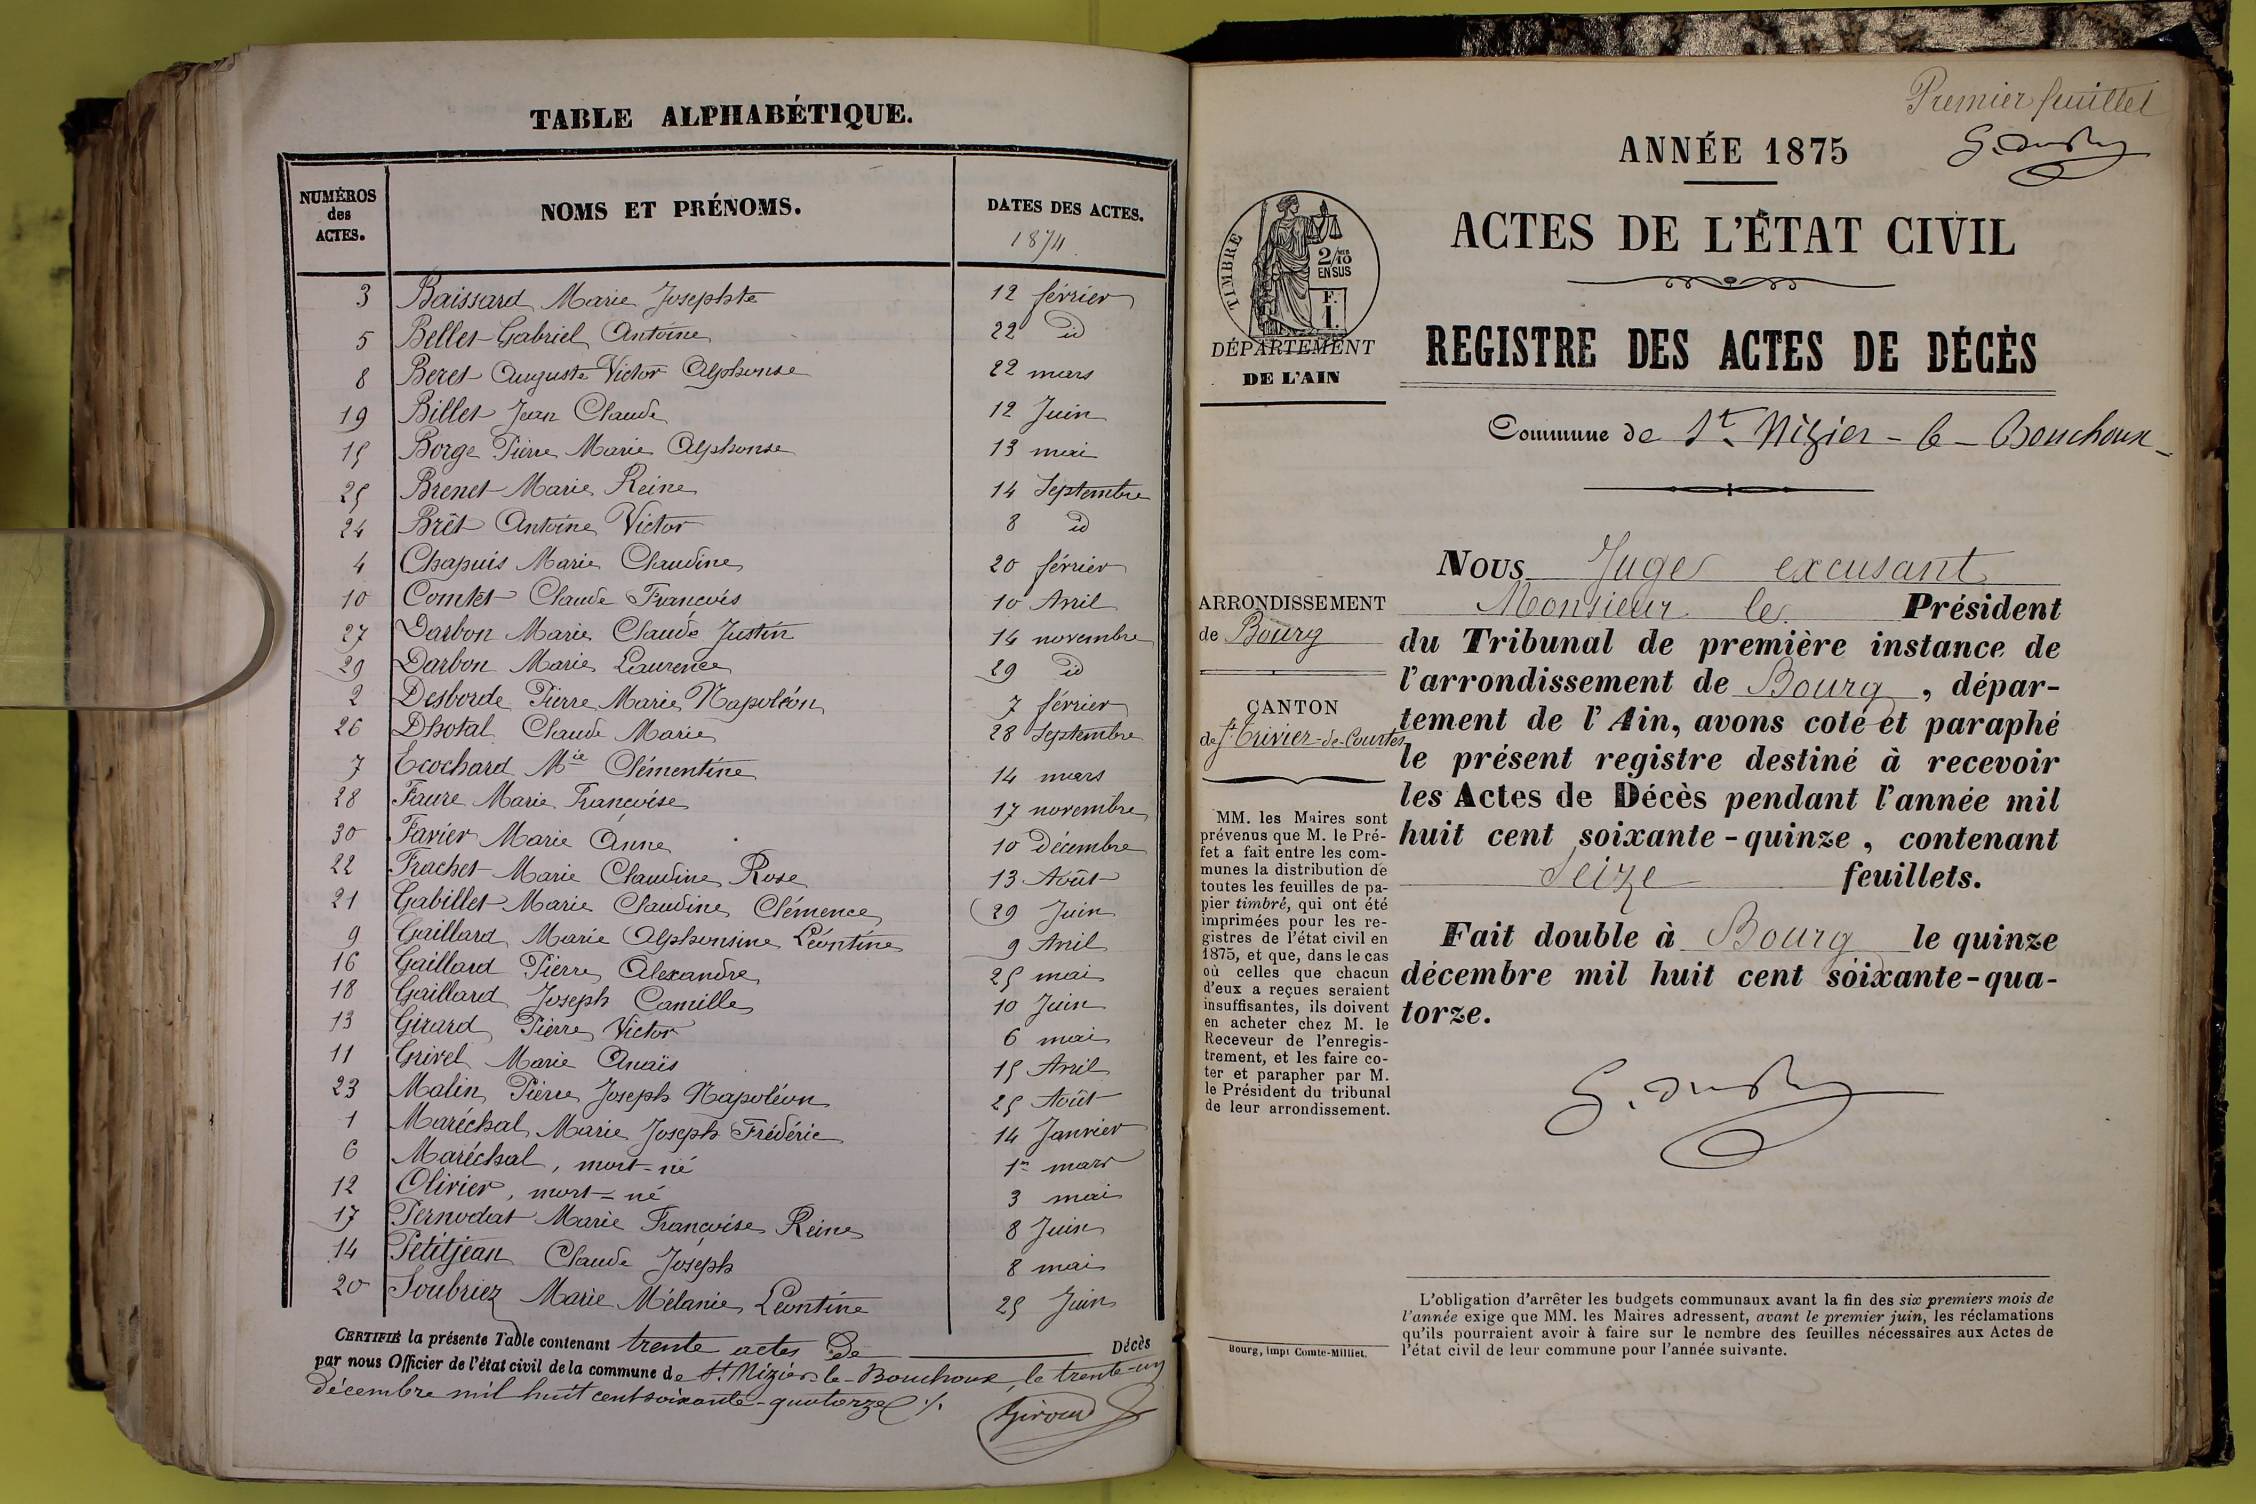 TABLE ALPHABÉTIQUE.
NUMÉROS des ACTES. NOMS ET PRÉNOMS. DATES DES ACTES.
1874
3 Baissard Marie Josephte 12 février
5 Bellet Gabriel Antoine 22 id
8 Beret Auguste Victor Alphonse 22 mars
19 Billet Jean Claude 12 Juin
15 Borge Pierre Marie Alphonse 13 mai
25 Brenet Marie Reine 14 Septembre
24 Brêt Antoine Victor 8 id
4 Chapuis Marie Claudine 20 février
10 Comtet Claude François 10 Avril
27 Darbon Marie Claude Justin 14 novembre
29 Darbon Marie Laurence 29 id
2 Desborde Pierre Marie Napoléon 7 février
26 Dhotal Claude Marie 28 Septembre
7 Ecochard Mie Clémentine 14 mars
28 Faure Marie Françoise 17 novembre
30 Favier Marie Anne 10 Décembre
22 Frachet Marie Claudine Rose 13 Août
21 Gabillet Marie Claudine Clémence 29 Juin
9 Gaillard Marie Alphonsine Léontine 9 Avril
16 Gaillard Pierre Alexandre 25 mai
18 Gaillard Joseph Camille 10 Juin
13 Girard Pierre Victor 6 mai
11 Grivel Marie Anaïs 15 Avril
23 Malin Pierre Joseph Napoléon 25 Août
1 Maréchal Marie Joseph Frédéric 14 Janvier
6 Maréchal, mort-né 1er mars
12 Olivier, mort-né 3 mai
17 Pernodat Marie Françoise Reine 8 Juin
14 Petitjean Claude Joseph 8 mai
20 Soubriez Marie Mélanie Léontine 25 Juin
CERTIFIÉ la présente Table contenant trente actes De Décès
par nous Officier de l'état civil de la commune de St. Nizier-le-Bouchoux, le trente-un
décembre mil huit cent soixante-quatorze ./.
Giroud
Premier feuillet
ANNÉE 1875
ACTES DE L'ÉTAT CIVIL
TIMBRE
2/10 EN SUS
F. 1.
DÉPARTEMENT
DE L'AIN
REGISTRE DES ACTES DE DÉCÈS
Commune de St. Nizier-le-Bouchoux
ARRONDISSEMENT
de Bourg
CANTON
de St Trivier-de-Courtes
MM. les Maires sont
prévenus que M. le Pré-
fet a fait entre les com-
munes la distribution de
toutes les feuilles de pa-
pier timbré, qui ont été
imprimées pour les re-
gistres de l'état civil en
1875, et que, dans le cas
où celles que chacun
d'eux a reçues seraient
insuffisantes, ils doivent
en acheter chez M. le
Receveur de l'enregis-
trement, et les faire co-
ter et parapher par M.
le Président du tribunal
de leur arrondissement.
Bourg, impr Comte-Milliet.
NOUS Juge excusant
Monsieur le Président
du Tribunal de première instance de
l'arrondissement de Bourg, dépar-
tement de l'Ain, avons coté et paraphé
le présent registre destiné à recevoir
les Actes de Décès pendant l'année mil
huit cent soixante-quinze, contenant
Seize feuillets.
Fait double à Bourg le quinze
décembre mil huit cent soixante-qua-
torze.
L'obligation d'arrêter les budgets communaux avant la fin des six premiers mois de
l'année exige que MM. les Maires adressent, avant le premier juin, les réclamations
qu'ils pourraient avoir à faire sur le nombre des feuilles nécessaires aux Actes de
l'état civil de leur commune pour l'année suivante.